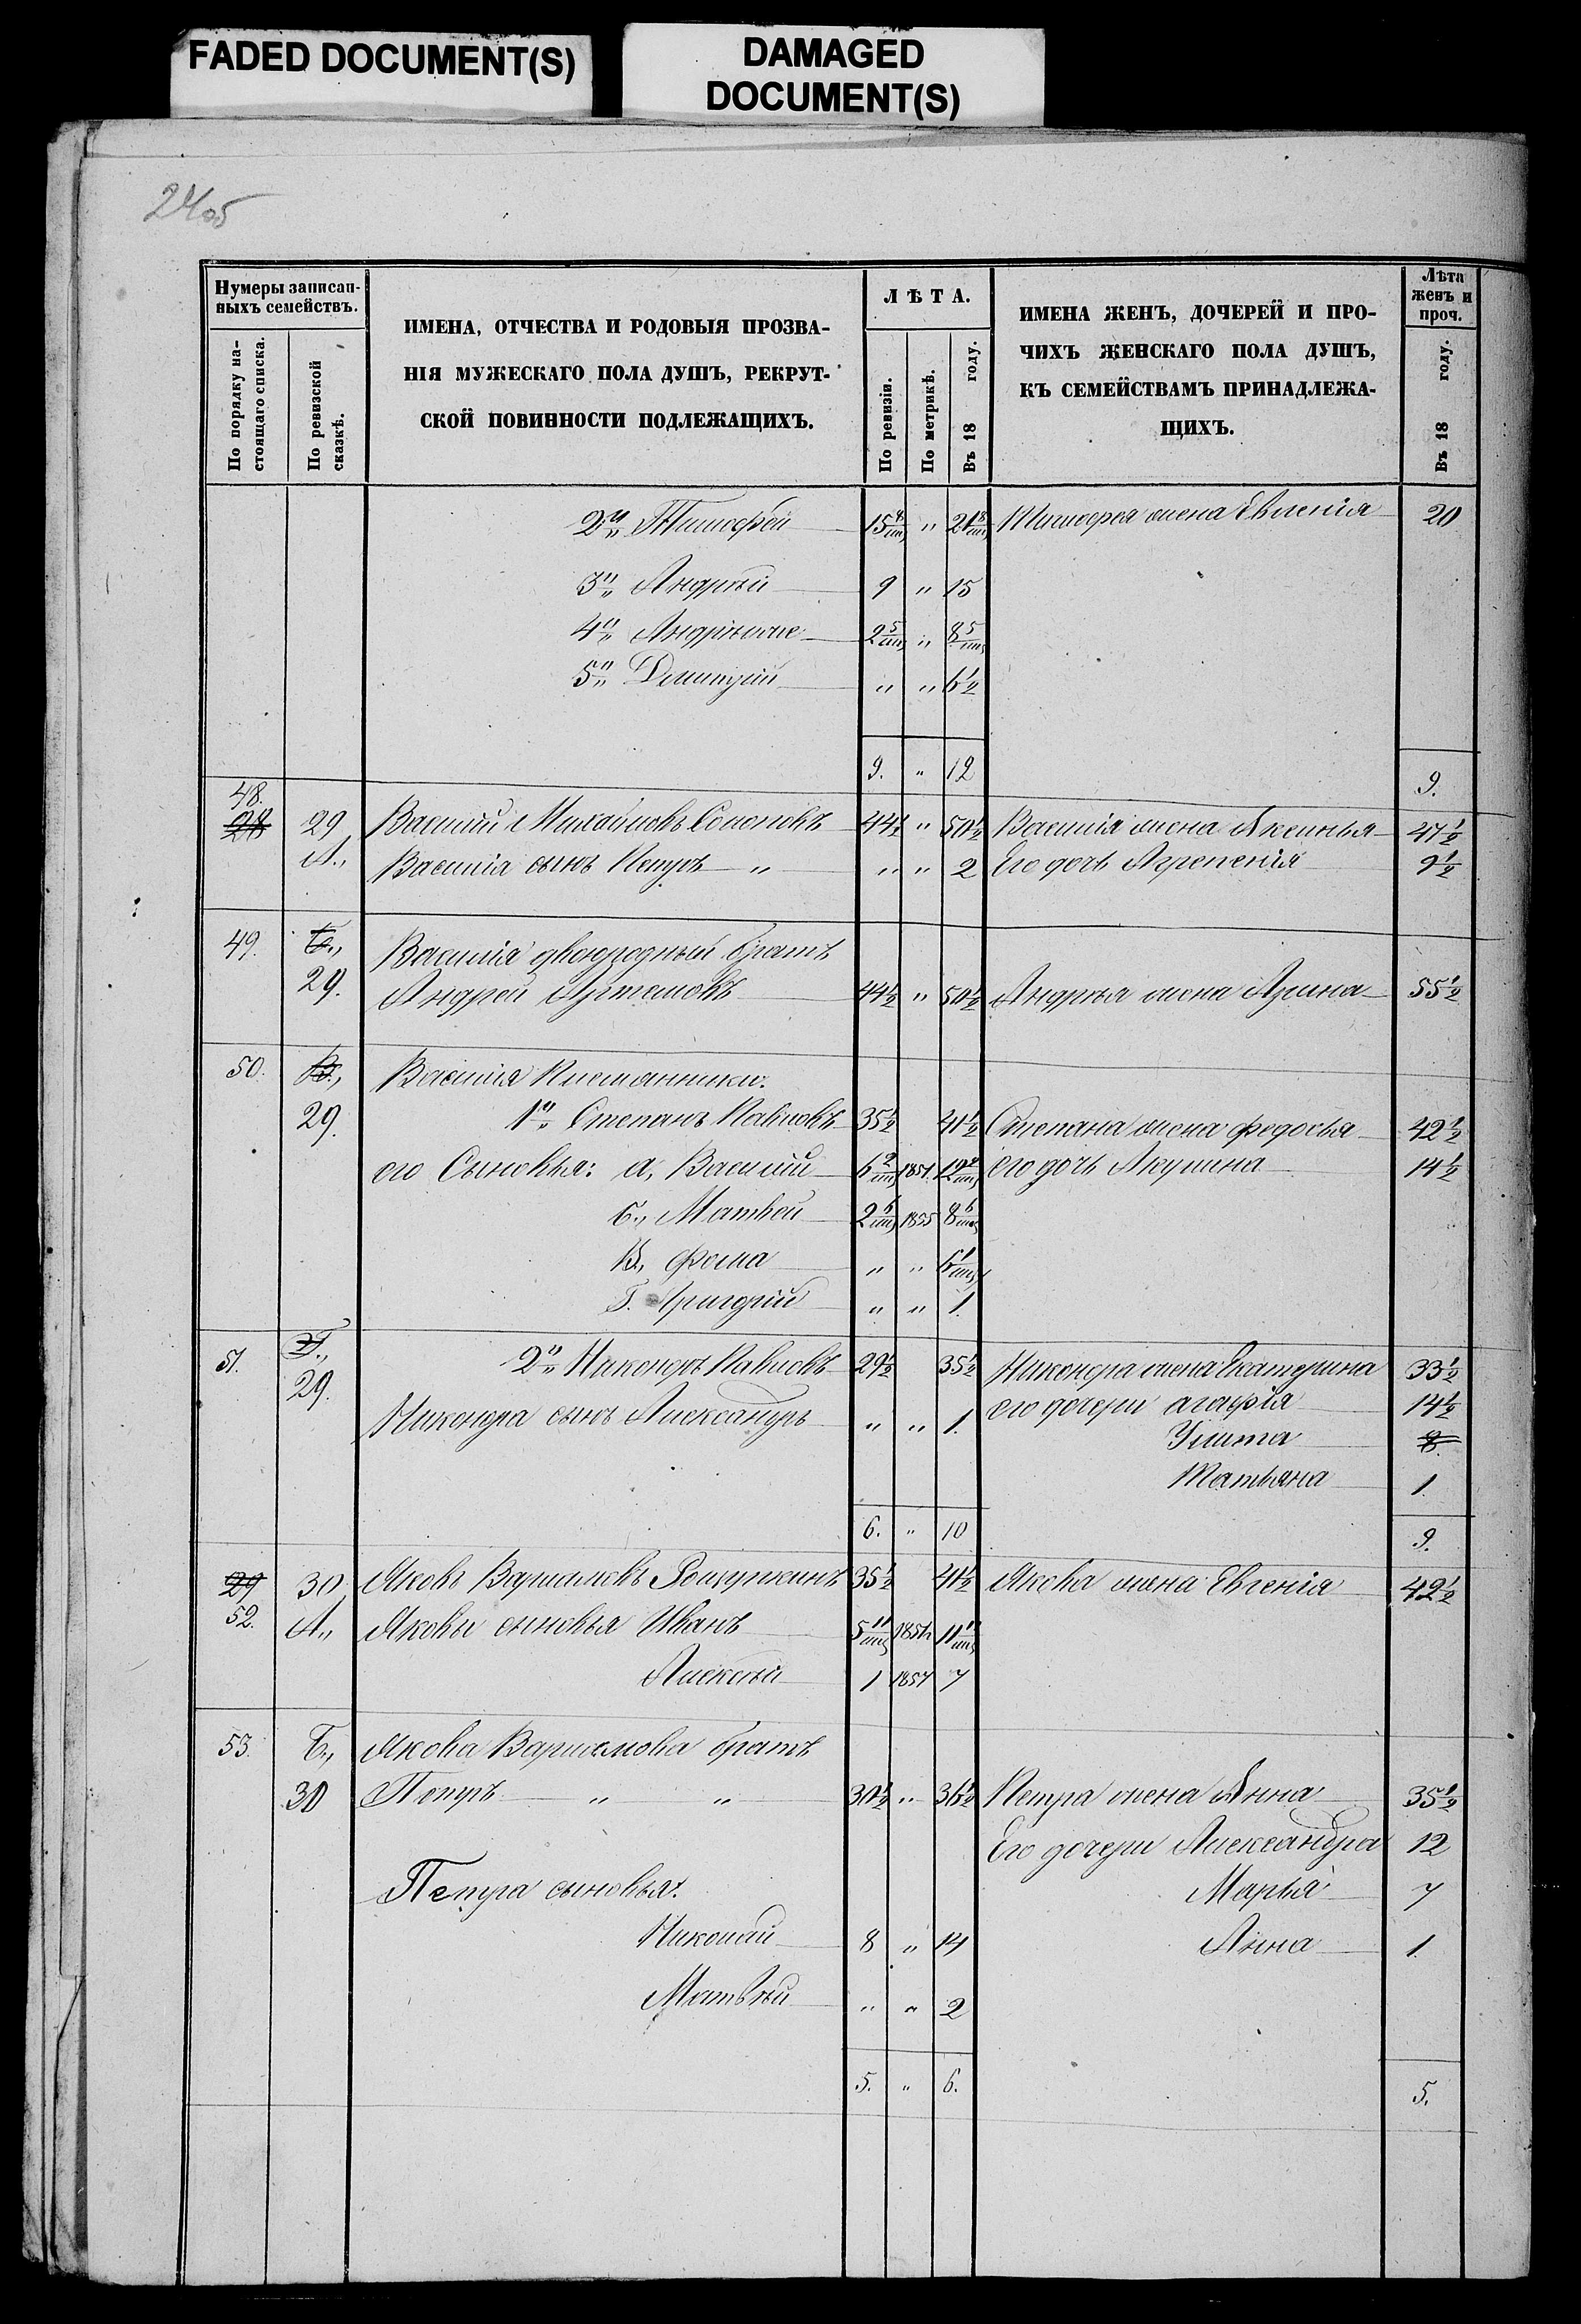 FADED DOCUMENT(S)
DAMAGED
DOCUMENT(S)
24об
Нумеры записан-
ныхъ семействъ.
По порядку на-
стоящаго списка.
По ревизской
сказкѣ.
ИМЕНА, ОТЧЕСТВА И РОДОВЫЯ ПРОЗВА-
НІЯ МУЖЕСКАГО ПОЛА ДУШЪ, РЕКРУТ-
СКОЙ ПОВИННОСТИ ПОДЛЕЖАЩИХЪ.
ЛѢТА.
По ревизіи.
По метрикѣ.
Въ 18 году.
ИМЕНА ЖЕНЪ, ДОЧЕРЕЙ И ПРО-
ЧИХЪ ЖЕНСКАГО ПОЛА ДУШЪ,
КЪ СЕМЕЙСТВАМЪ ПРИНАДЛЕЖА-
ЩИХЪ.
Лѣта
женъ и
проч.
Въ 18 году.
2й Тимофей 15 " 21 Тимофея жена 20
3й Андрей 9 " 15
4й 2 5/мц " 8 5/мц
5й Дмитрій " " 6½
9. " 12 9.
48.
28 29 Василій Михайловъ 44½ " 50½ Василія жена Аксинья 47½
А., Василія сынъ Петръ " " " 2 Его дочь 9½
49. Б., Василія двоюродный братъ
29. Андрей Артемовъ 44½ " 50½ Андрея жена Арина 55½
50. В., Василія племянники:
29. 1й Степанъ Павловъ 35½ 41½ Степана жена Федосья 42½
его Сыновья: а, Василій 6 9/мц 1851. 12 9/мц его дочь Акулина 14½
б., Матвей 2 6/мц 1855 8 6/мц
В., Фома " " 6 1/мц
Г. Григорій " " 1.
51. Г., 2й Никондръ Павловъ 29½ 35½ Никондра жена Екатерина 33½
29. Никондра сынъ Александръ " " 1. его дочери агафія 14½
Улита 8.
Татьяна 1.
6. " 10 9.
29 30 Яковъ Варламовъ 35½ 41½ Якова жена Евгенія 42½
52. А., Яковы сыновья Иванъ 5 11/мц 1851 11 11/мц
Алексѣй 1 1857 7
53. Б., Якова Варламова братъ
30 Петръ " " 30½ " 36½ Петра жена Анна 35½
Его дочери Александра 12
Петра сыновья: Марья 7
Николай 8 " 14 Анна 1.
Матвѣй " " 2
5. " 6. 5.